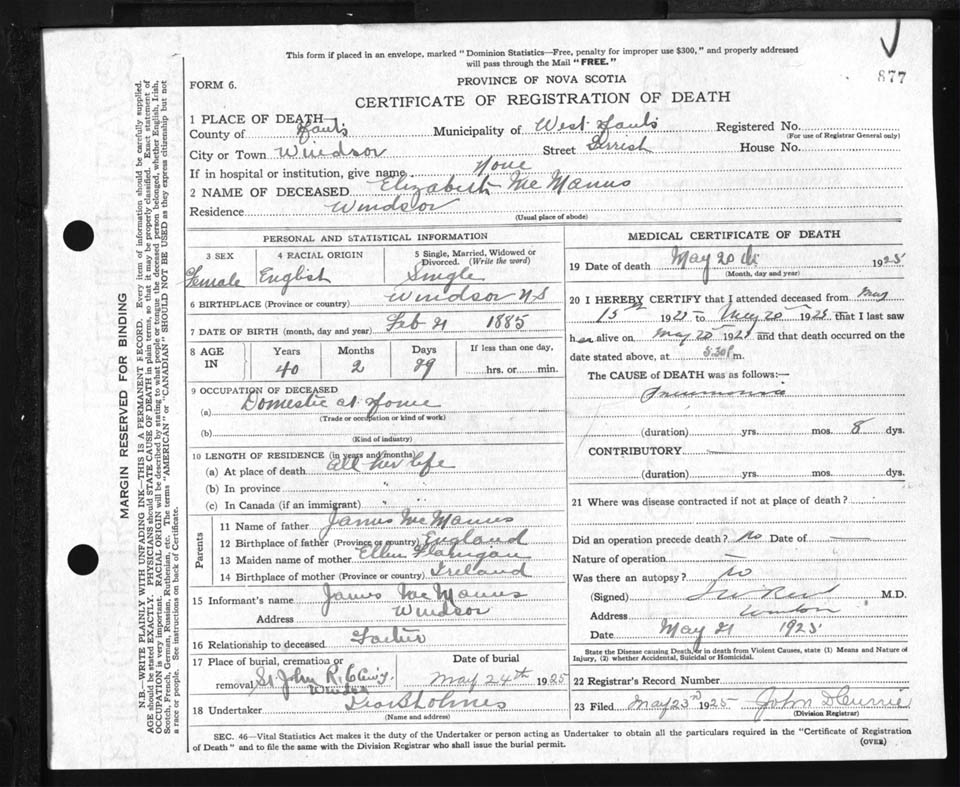 This form if placed in an envelope, marked "Dominion Statistics—Free, penalty for improper use $300," and properly addressed
will pass through the Mail "FREE."
877
FORM 6.
PROVINCE OF NOVA SCOTIA
CERTIFICATE OF REGISTRATION OF DEATH
1 PLACE OF DEATH
County of Hants Municipality of West Hants Registered No.
(For use of Registrar General only)
City or Town Windsor Street House No.
If in hospital or institution, give name None
2 NAME OF DECEASED Elizabeth McManus
Residence Windsor
(Usual place of abode)
PERSONAL AND STATISTICAL INFORMATION
3 SEX 4 RACIAL ORIGIN 5 Single, Married, Widowed or
Divorced. (Write the word)
Female English Single
6 BIRTHPLACE (Province or country) Windsor N S
7 DATE OF BIRTH (month, day and year) Feb 21 1885
8 AGE IN Years Months Days If less than one day,
40 2 29 hrs. or min.
9 OCCUPATION OF DECEASED
(a) Domestic at Home
(Trade or occupation or kind of work)
(b)
(Kind of industry)
10 LENGTH OF RESIDENCE (in years and months)
(a) At place of death all her life
(b) In province "
(c) In Canada (if an immigrant) " "
Parents
11 Name of father James McManus
12 Birthplace of father (Province or country) England
13 Maiden name of mother Ellen Flanigan
14 Birthplace of mother (Province or country) Ireland
15 Informant's name James McManus
Address Windsor
16 Relationship to deceased Father
17 Place of burial, cremation or Date of burial
removal St John R. C. Windsor May 24th 1925
18 Undertaker
(Name and address)
MEDICAL CERTIFICATE OF DEATH
19 Date of death May 20th 1925
(Month, day and year)
20 I HEREBY CERTIFY that I attended deceased from May
15th 1925 to May 20 1925 that I last saw
her alive on May 20 1925 and that death occurred on the
date stated above, at 8.30 P m.
The CAUSE of DEATH was as follows:—
Pneumonia
(duration) yrs. mos. 8 dys.
CONTRIBUTORY
(duration) yrs. mos. dys.
21 Where was disease contracted if not at place of death?
Did an operation precede death? no Date of
Nature of operation
Was there an autopsy? no
(Signed) M.D.
Address Windsor
Date May 21 1925
State the Disease causing Death, or in death from Violent Causes, state (1) Means and Nature of
Injury, (2) whether Accidental, Suicidal or Homicidal.
22 Registrar's Record Number
23 Filed May 23rd 1925 John D Currie
(Division Registrar)
SEC. 46—Vital Statistics Act makes it the duty of the Undertaker or person acting as Undertaker to obtain all the particulars required in the "Certificate of Registration
of Death" and to file the same with the Division Registrar who shall issue the burial permit.
(OVER)
MARGIN RESERVED FOR BINDING
N.B.—WRITE PLAINLY WITH UNFADING INK—THIS IS A PERMANENT RECORD. Every item of information should be carefully supplied.
AGE should be stated EXACTLY. PHYSICIANS should STATE CAUSE OF DEATH in plain terms, so that it may be properly classified. Exact statement of
OCCUPATION is very important. RACIAL ORIGIN will be described by stating to what people or tongue the deceased person belonged, whether English, Irish,
Scotch, French, German, Russian, Ruthenian, etc. The terms "AMERICAN" or "CANADIAN" SHOULD NOT BE USED as they express citizenship but not
a race or people. See instructions on back of Certificate.